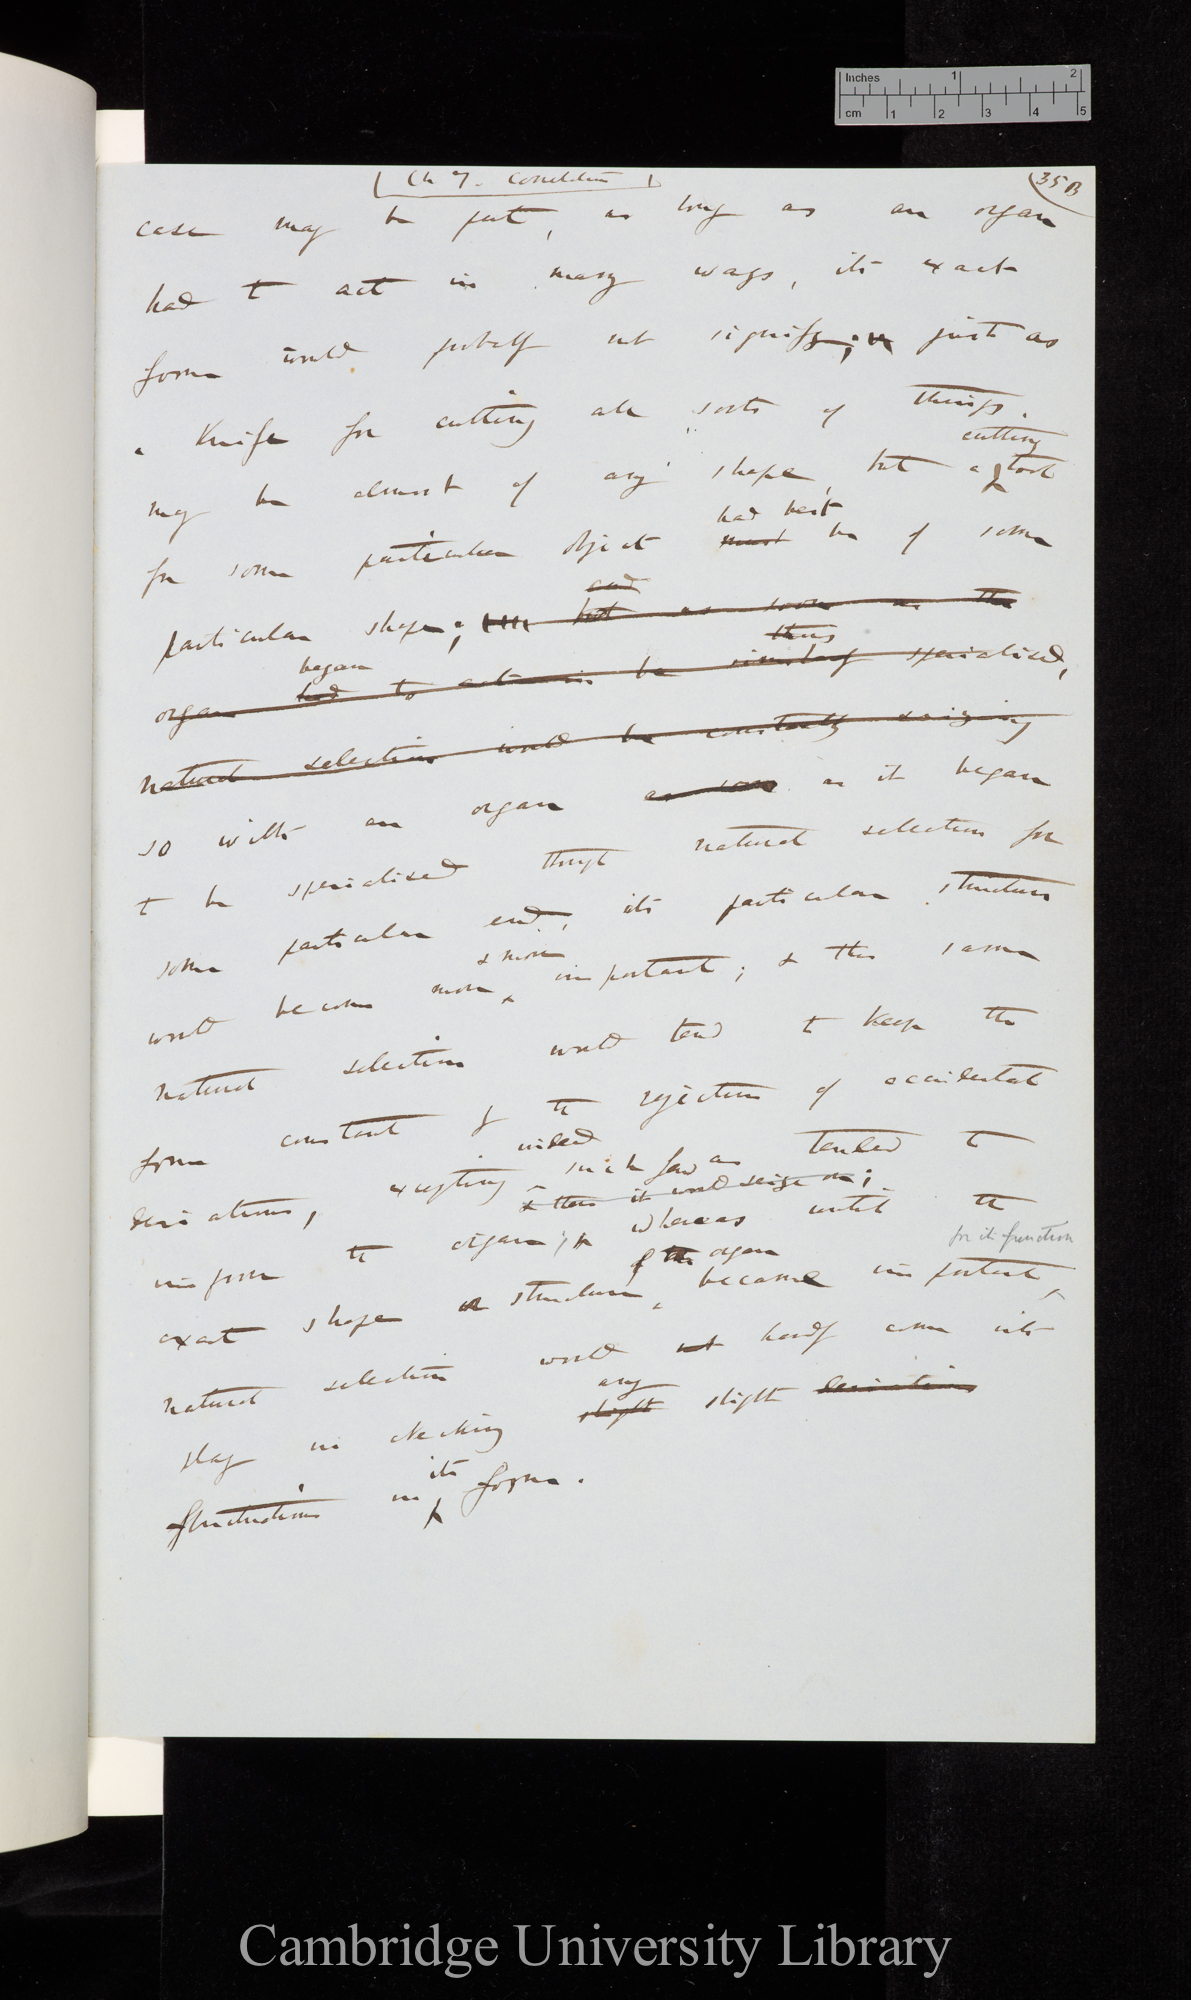 Inches 1 2
cm 1 2 3 4 5
(Ch 7. Conditions)
35 B
case may be put, as long as an organ
had to act in many ways, its exact
form would probably not signify; just as
a Knife for cutting all sorts of things
may be almost of any shape, but a cutting tool
for some particular object must had best be of some
particular shape; but and as soon as the
organ had began to act in be similarly thus specialised,
natural selection would be constantly seizing
so with an organ as soon as it began
to be specialised through natural selection for
some particular end, its particular structure
would become more & more important; & this same
natural selection would tend to keep the
form constant by the rejection of accidental
deviations, excepting indeed such few as tended to
& then it would seize on;
improve the organ; whereas until the
exact shape or structure of the organ became important for its function,
natural selection would not hardly come into
play in checking slight any slight deviations
fluctuations in its form.
Cambridge University Library